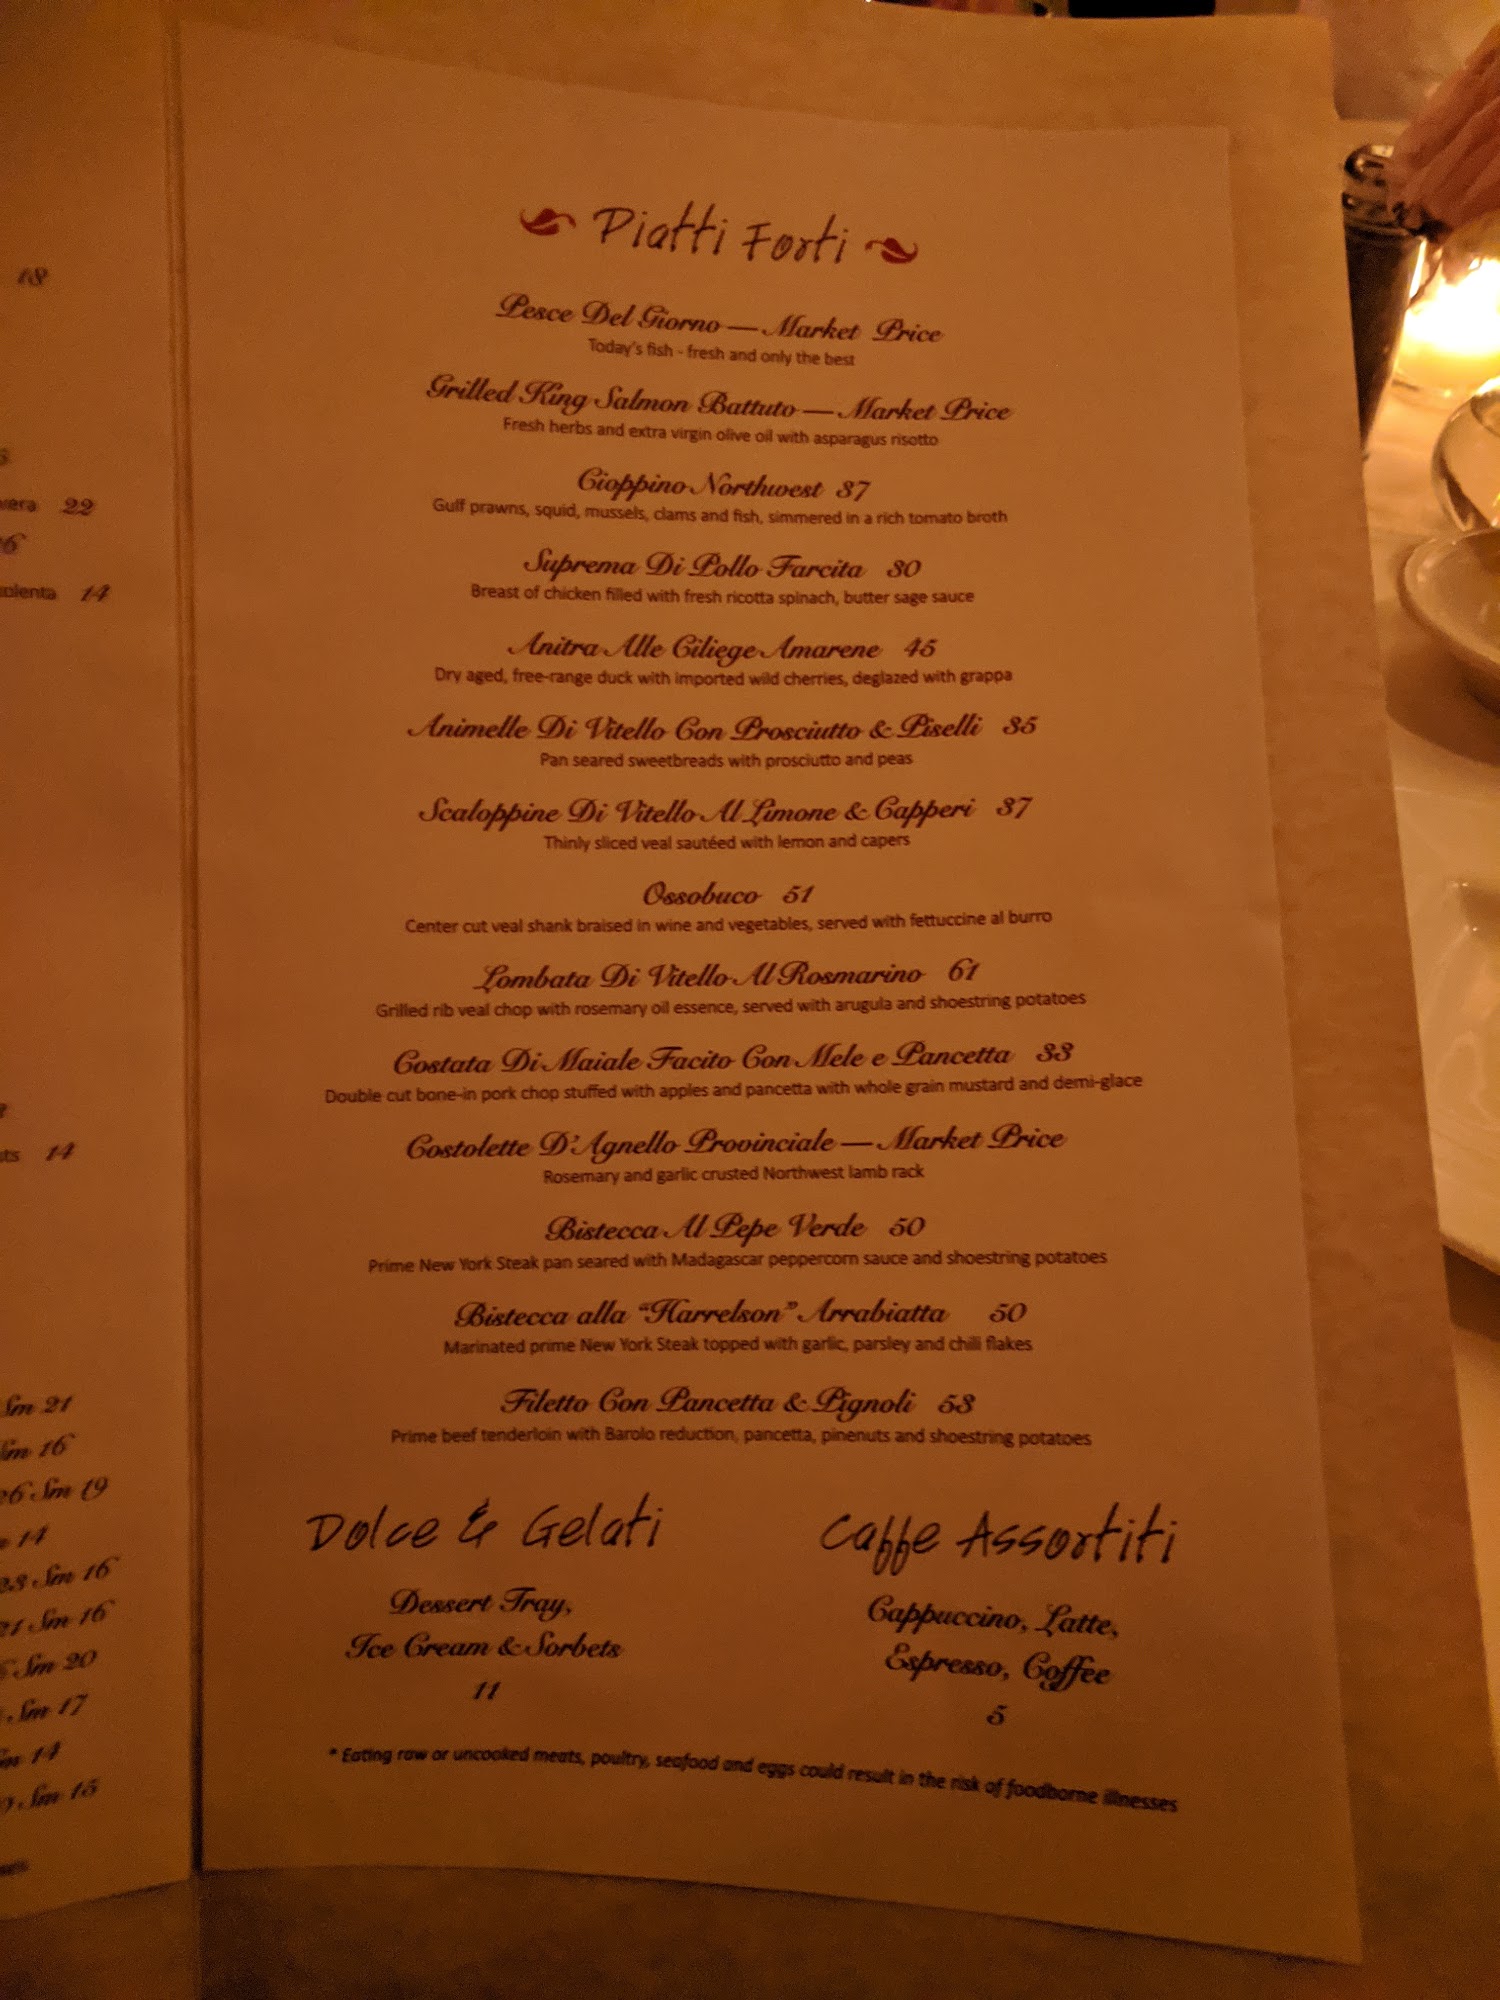 18
22
14
14
Sm 21
Sm 16
26 Sm 19
14
23 Sm 16
21 Sm 16
Sm 20
Sm 17
14
Sm 15
Piatti Forti
Pesce Del Giorno — Market Price
Today's fish - fresh and only the best
Grilled King Salmon Battuto — Market Price
Fresh herbs and extra virgin olive oil with asparagus risotto
Cioppino Northwest 37
Gulf prawns, squid, mussels, clams and fish, simmered in a rich tomato broth
Suprema Di Pollo Farcita 30
Breast of chicken filled with fresh ricotta spinach, butter sage sauce
Anitra Alle Ciliege Amarene 45
Dry aged, free-range duck with imported wild cherries, deglazed with grappa
Animelle Di Vitello Con Prosciutto & Piselli 35
Pan seared sweetbreads with prosciutto and peas
Scaloppine Di Vitello Al Limone & Capperi 37
Thinly sliced veal sautéed with lemon and capers
Ossobuco 51
Center cut veal shank braised in wine and vegetables, served with fettuccine al burro
Lombata Di Vitello Al Rosmarino 61
Grilled rib veal chop with rosemary oil essence, served with arugula and shoestring potatoes
Costata Di Maiale Facito Con Mele e Pancetta 33
Double cut bone-in pork chop stuffed with apples and pancetta with whole grain mustard and demi-glace
Costolette D'Agnello Provinciale — Market Price
Rosemary and garlic crusted Northwest lamb rack
Bistecca Al Pepe Verde 50
Prime New York Steak pan seared with Madagascar peppercorn sauce and shoestring potatoes
Bistecca alla "Harrelson" Arrabiatta 50
Marinated prime New York Steak topped with garlic, parsley and chili flakes
Filetto Con Pancetta & Pignoli 53
Prime beef tenderloin with Barolo reduction, pancetta, pinenuts and shoestring potatoes
Dolce & Gelati
Dessert Tray,
Ice Cream & Sorbets
11
Caffe Assortiti
Cappuccino, Latte,
Espresso, Coffee
5
* Eating raw or uncooked meats, poultry, seafood and eggs could result in the risk of foodborne illnesses